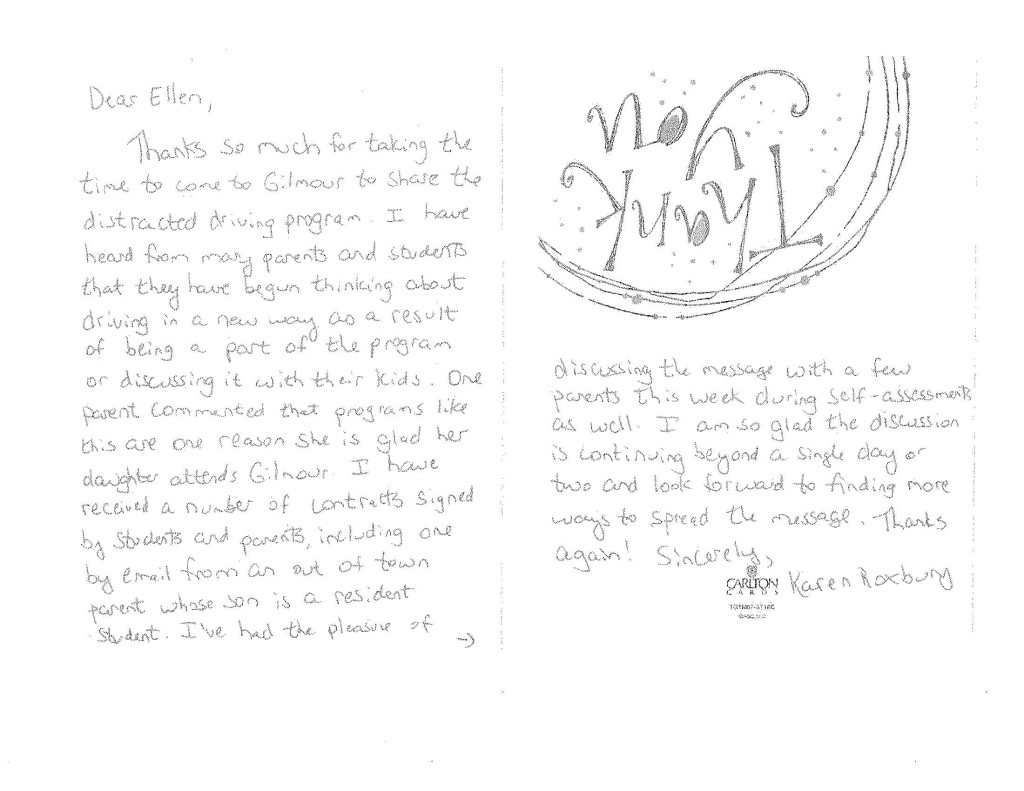 Dear Ellen,
Thanks so much for taking the
time to come to Gilmour to share the
distracted driving program. I have
heard from many parents and students
that they have begun thinking about
driving in a new way as a result
of being a part of the program
or discussing it with their kids. One
parent commented that programs like
this are one reason she is glad her
daughter attends Gilmour. I have
received a number of contracts signed
by students and parents, including one
by email from an out of town
parent whose son is a resident
student. I've had the pleasure of →
Thank
you
discussing the message with a few
parents this week during self-assessments
as well. I am so glad the discussion
is continuing beyond a single day or
two and look forward to finding more
ways to spread the message. Thanks
again! Sincerely,
Karen Roxbury
CARLTON
CARDS